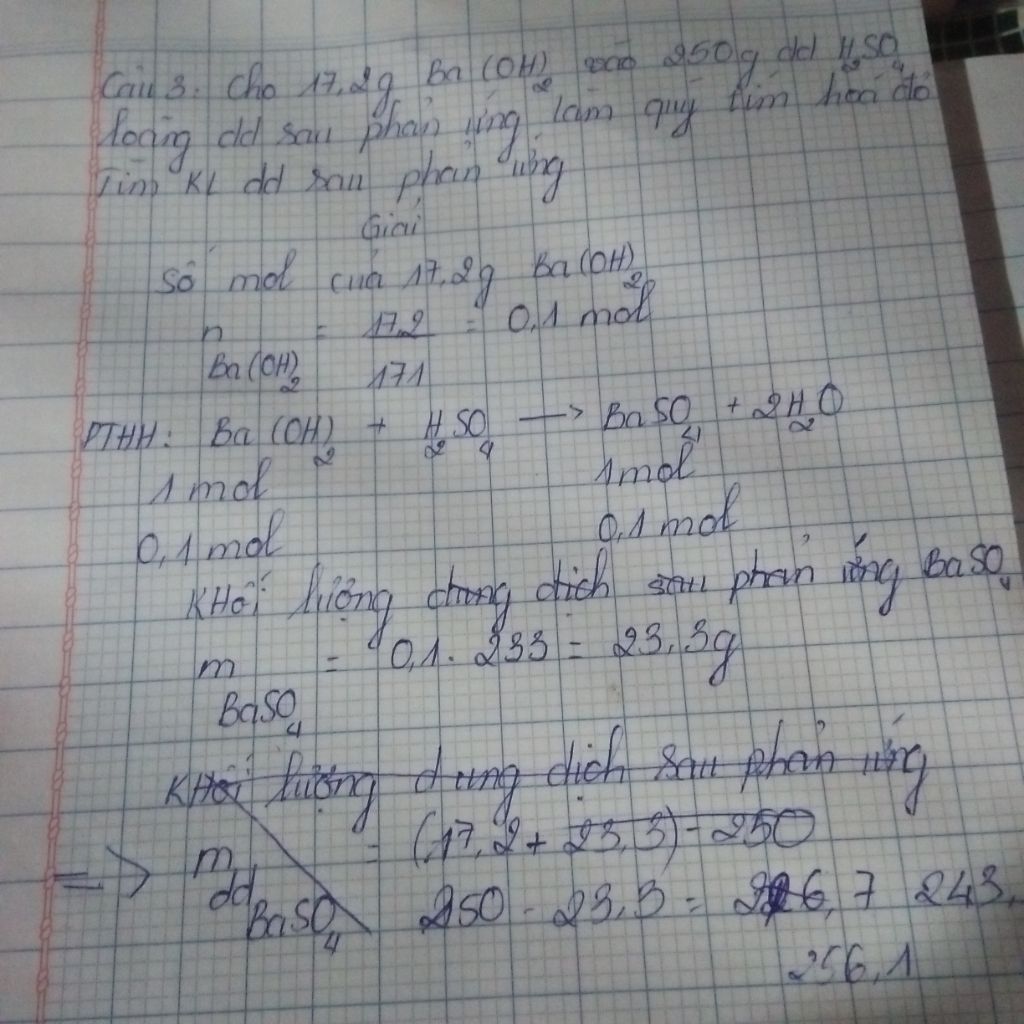 Câu 3: Cho 17,2g Ba(OH)2 vào 250g dd H2SO4
loãng dd sau phản ứng làm quỳ tím hoá đỏ
Tìm KL dd sau phản ứng
Giải
Số mol của 17,2g Ba(OH)2
n Ba(OH)2 = 17,2 / 171 = 0,1 mol
PTHH: Ba(OH)2 + H2SO4 → BaSO4 + 2H2O
1 mol 1 mol
0,1 mol 0,1 mol
Khối lượng dung dịch sau phản ứng BaSO4
m BaSO4 = 0,1 . 233 = 23,3g
Khối lượng dung dịch sau phản ứng
=> m dd BaSO4 = (17,2 + 23,3) - 250
250 - 23,3 = 226,7 243,
256,1